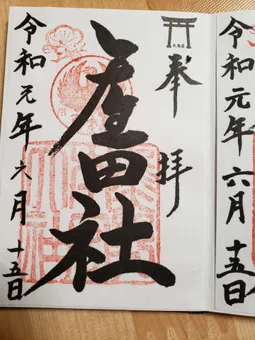 令和元年六月十五日
奉拝
産田社
令和元年六月十五日